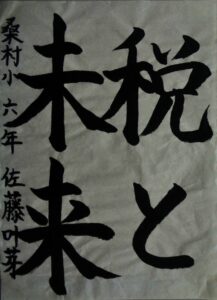 税と
未来
桑村小六年 佐藤叶芽